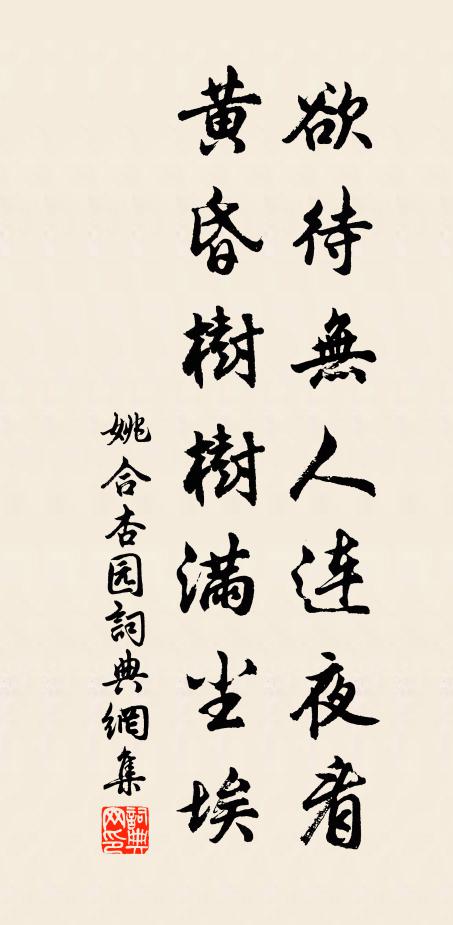 欲待無人连夜看
黄昏樹樹满尘埃
姚合杏园詞典網集
詞典网印